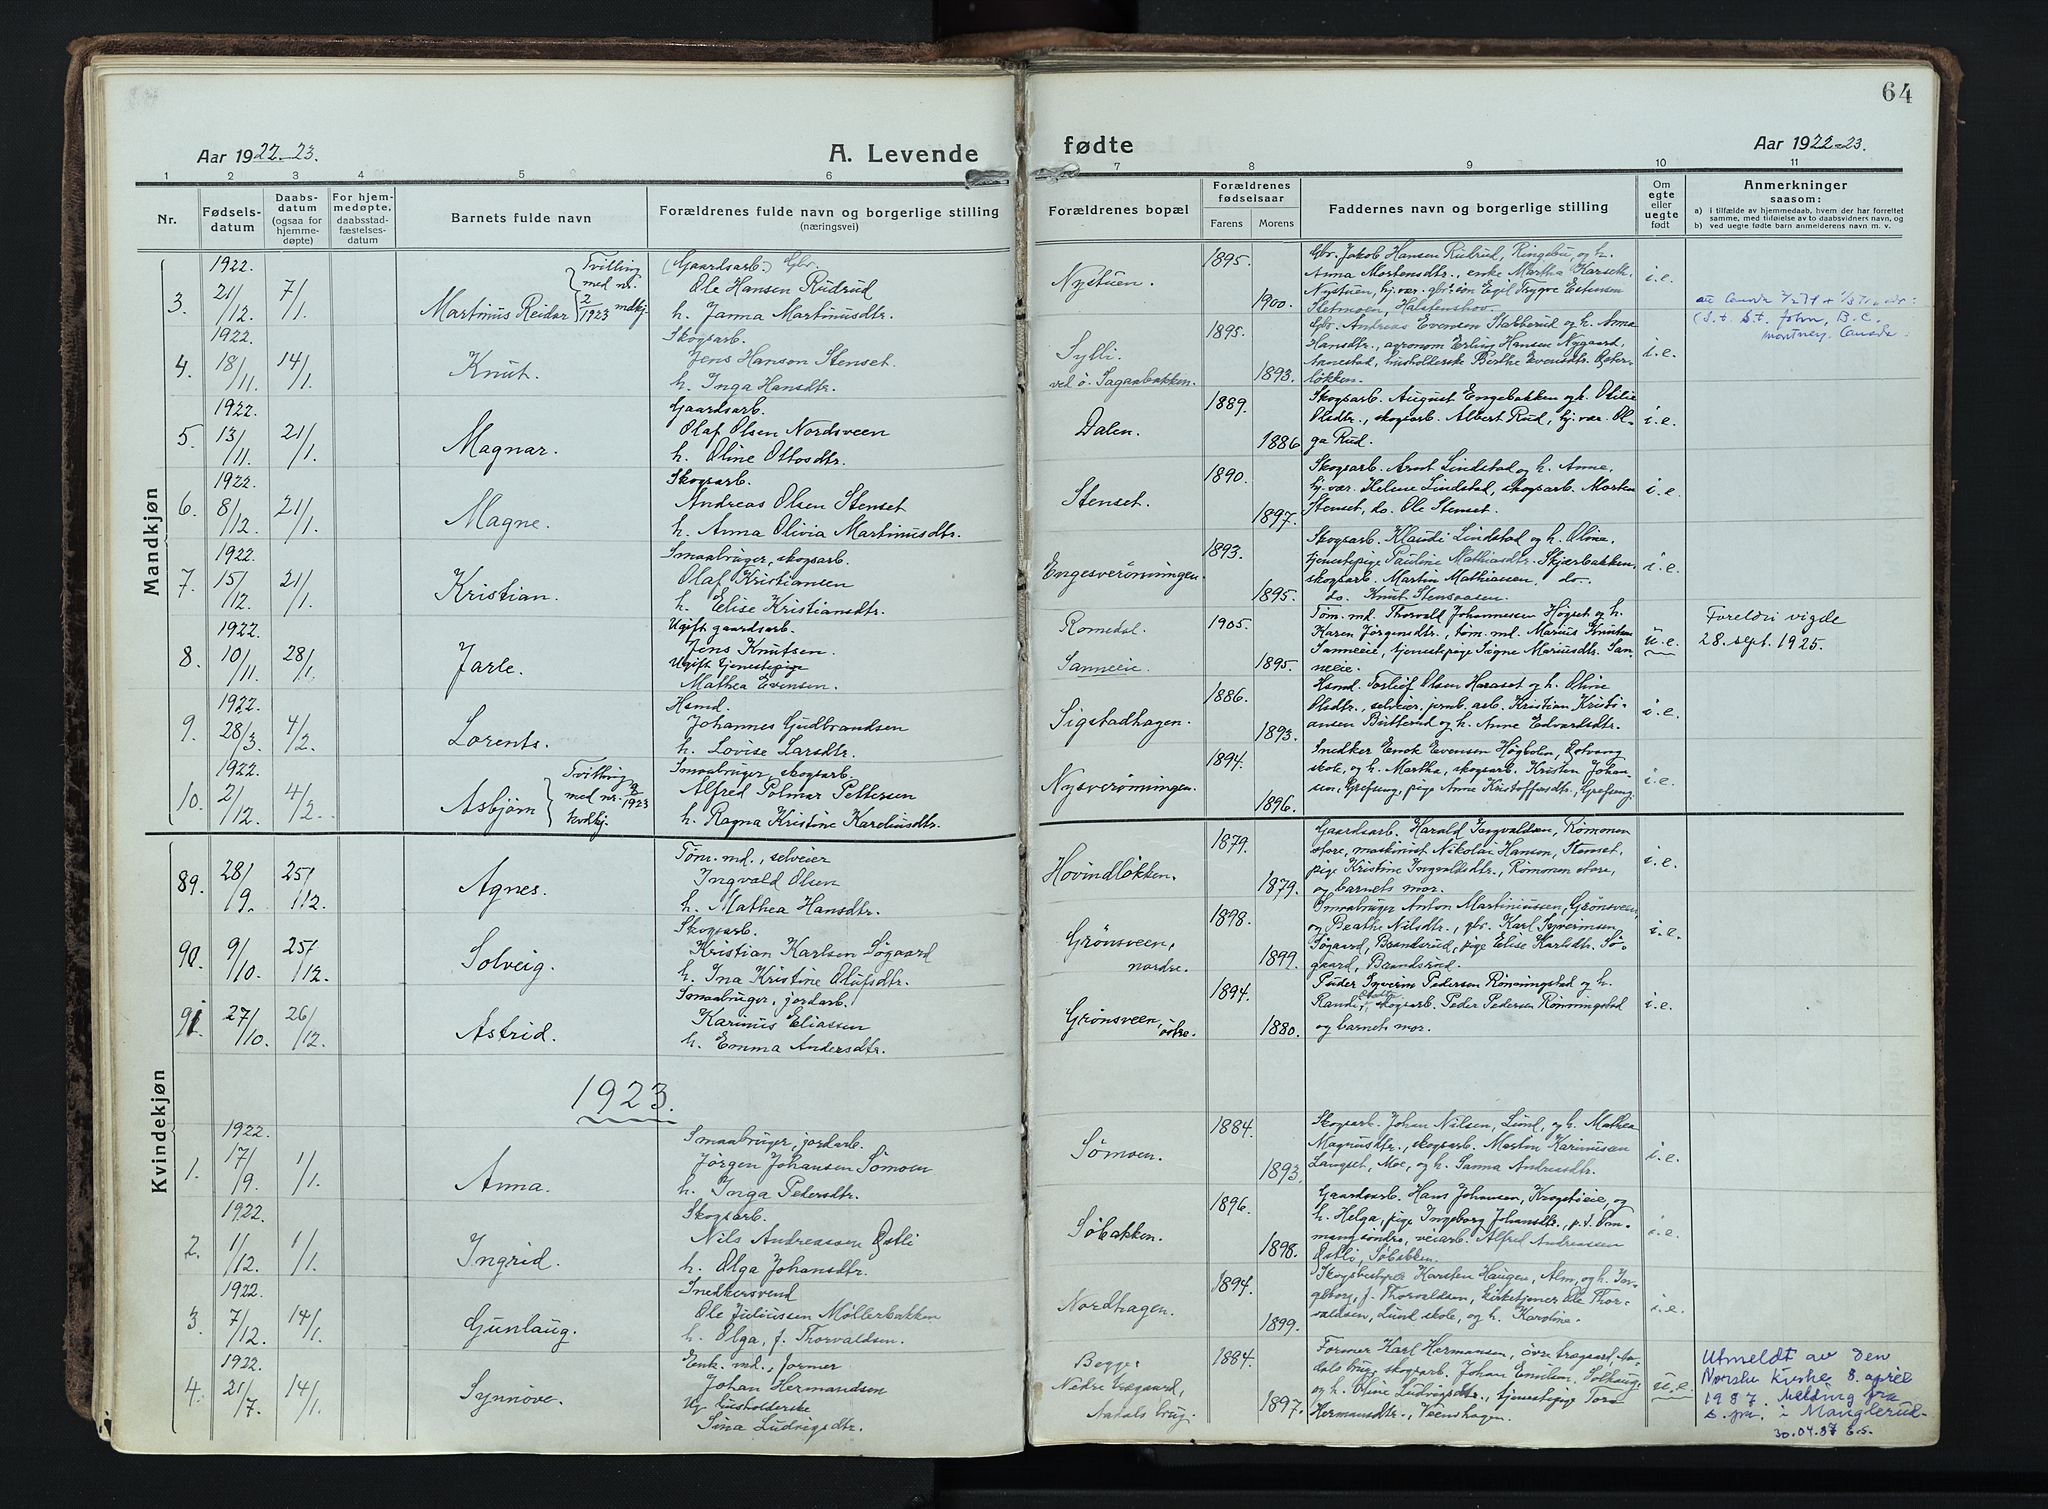 64
Aar 1922-23.
A. Levende
fødte
Aar 1922-23.
1 2 3 4 5 6 7 8 9 10 11
Nr.
Fødsels-
datum
Daabs-
datum
(ogsaa for
hjemme-
døpte)
For hjem-
medøpte,
daabsstad-
fæstelses-
datum
Barnets fulde navn
Forældrenes fulde navn og borgerlige stilling
(næringsvei)
Forældrenes bopæl
Forældrenes
fødselsaar
Farens
Morens
Faddernes navn og borgerlige stilling
Om
egte
eller
uegte
født
Anmerkninger
saasom:
a) i tilfælde av hjemmedaab, hvem der har forrettet
samme, med tilføielse av to daabsvidners navn, og
b) ved uegte fødte barn anmelderens navn m. v.
Mandkjøn
3. 1922. 21/12. 7/1. Martinus Reidar
Tvilling
med nr.
2
1923 mdkj.
(Gaardsarb.) Gbr.
Ole Hansen Rudrud
h. Janna Martinusdtr.
Nystuen 1895. 1900.
Gbr. Jakob Hansen Rudrud, Ringebu, og h.
Anna Mortensdtr., enke Martha Karsek.
Nystuen, hj.vær. gbr.søn Egil Trygve Estensen
Sletmoen, Halstenshov.
i.e.
4. 1922. 18/11. 14/1. Knut.
Skogsarb.
Jens Hanson Stenset.
h. Inga Hansdtr.
Sylli
ved ø. Sagaabakken.
1895. 1893.
Gbr. Andreas Evensen Stabberud og h. Anna
Hansdtr., agronom Erling Hansen Nygaard,
Annestad, husholderske Berthe Evensdtr. Oster-
løkken.
i.e.
5. 1922. 13/11. 21/1. Magnar.
Gaardsarb.
Olaf Olsen Nordsveen
h. Oline Ottosdtr.
Dalen. 1889. 1886
Skogsarb. August Engebakken og h. Otilie
Olsdtr., skogsarb. Albert Rud, hj. vær. Ol-
ga Rud.
i.e.
6. 1922. 8/12. 21/1. Magne.
Skogsarb.
Andreas Olsen Stenset
h. Anna Olivia Martinusdtr.
Stenset. 1890. 1897.
Skogsarb. Arnt Lindstad og h. Anne,
hj. vær. Helene Lindstad, skogsarb. Morten
Stenset, do. Ole Stenset.
i.e.
7. 1922. 15/12. 21/1. Kristian.
Smaabruger, skogsarb.
Olaf Kristiansen
h. Elise Kristiansdtr.
Engesverønningen. 1893. 1895.
Skogsarb. Klaudi Lindstad og h. Oline,
tjenestepige Pauline Mathiasdtr. Skjærbakken,
skogsarb. Martin Mathiassen, do.
do. Knut Stensaasen.
i.e.
8. 1922. 10/11. 28/1. Jarle.
Ugift gaardsarb.
Jens Knutsen.
Ugift tjenestepige
Mathea Evensen.
Romedal
Sanneeie.
1905. 1895.
Tøm. md. Thorvald Johannessen Høgset og h.
Karen Jørgensdtr., tøm. md. Marius Knutsen
Sanneeie, tjenestepige Signe Mariusdtr. San-
neeie.
u.e.
Foreldri vigde
28. sept. 1925.
9. 1922. 28/3. 4/2. Lorents.
Hsmd.
Johannes Gudbrandsen
h. Lovise Larsdtr.
Sigstadhagen. 1886. 1893.
Hsmd. Torleif Olsen Haraset og h. Oline
Olsdtr., selveier, jernb. arb. Kristian Kristi-
ansen Buttlund og h. Anne Edvardsdtr.
i.e.
10. 1922. 2/12. 4/2. Asbjørn
Tvilling
med nr. 9
1923
kvdkj.
Smaabruger, skogsarb.
Alfred Polmar Pettersen
h. Ragna Kristine Kareliusdtr.
Nysverønningen. 1894. 1896.
Snedker Enok Evensen Høgbolen, Østvang
skole, og h. Martha, skogsarb. Kristen Johan-
sen, Grefseng, pige Anne Kristoffersdtr., Grefseng.
i.e.
Kvindekjøn
89. 28/9. 25/12. Agnes.
Tøm. md., selveier
Ingvald Olsen
h. Mathea Hansdtr.
Hovindløkken. 1879. 1879.
Gaardsarb. Harald Ingvaldsen, Rømonen
store, maskinist Nikolai Hansen, Stenset,
pige Kristine Ingvaldsdtr., Rømonen store,
og barnets mor.
i.e.
90. 9/10. 25/12. Solveig.
Skogsarb.
Kristian Karlsen Søgaard
h. Ina Kristine Olufsdtr.
Grønsveen,
nordre.
1898. 1899.
Smaabruger Anton Martiniussen, Grønsveen,
og Beathe Nilsdtr., gbr. Karl Syvernsen
Søgaard, Brandsrud, pige Elise Karlsdtr. Sø-
gaard, Brandsrud.
i.e.
91. 27/10. 26/12. Astrid.
Smaabruger, jordarb.
Karinus Eliassen
h. Emma Andersdtr.
Grønsveen, østre. 1894. 1880.
Puder Syverin Pedersen Rønningstad og h.
Randi, skogsarb. Peder Pedersen Rønningstad
og barnets mor.
i.e.
1923.
1. 1922. 17/9. 1/1. Anna.
Smaabruger, jordarb.
Jørgen Johansen Sømoen
h. Inga Pedersdtr.
Sømoen. 1884. 1893.
Skogsarb. Johan Nilsen, Lund, og h. Mathea
Magnusdtr., skogsarb. Martin Karinusen
Langset, Moe, og h. Sanna Andreasdtr.
i.e.
2. 1922. 1/12. 1/1. Ingrid.
Skogsarb.
Nils Andreassen Østli
h. Olga Johansdtr.
Søbakken. 1896. 1898.
Gaardsarb. Hans Johansen, Krogstøeie, og
h. Helga, pige Ingeborg Johansdtr., p.t. Om-
mang søndre, veiarb. Alfred Andreassen
Østli, Søbakken.
i.e.
3. 1922. 7/12. 14/1. Gunlaug.
Snedkersvend
Ole Juliussen Møllerbakken
h. Olga, f. Thorvaldsen.
Nordhagen. 1894. 1899.
Skogsbestyrer Karsten Haugen, Alm, og h. In-
geborg, f. Thorvaldsen, kirketjener Ole Thor-
valdsen, Lund skole, og h. Karoline.
i.e.
4. 1922. 21/7. 14/1. Synnøve.
Enk. md., former
Johan Hermandsen
Ug. husholderske
Sina Ludvigsdtr.
Begge
Nedre Vægaard,
Aadals brug.
1884. 1897.
Former Karl Hermansen, øvre Vægaard, Aa-
dals brug, skogsarb. Johan Emilsen Solhaug,
og h. Oline Ludvigsdtr., tjenestepige Tora
Hermansdtr., Veenshagen.
u.e.
Utmeldt av Den
Norske Kirke 8. april
1987. Melding fra
s. pr. i Manglerud.
30.04.87 E.S.